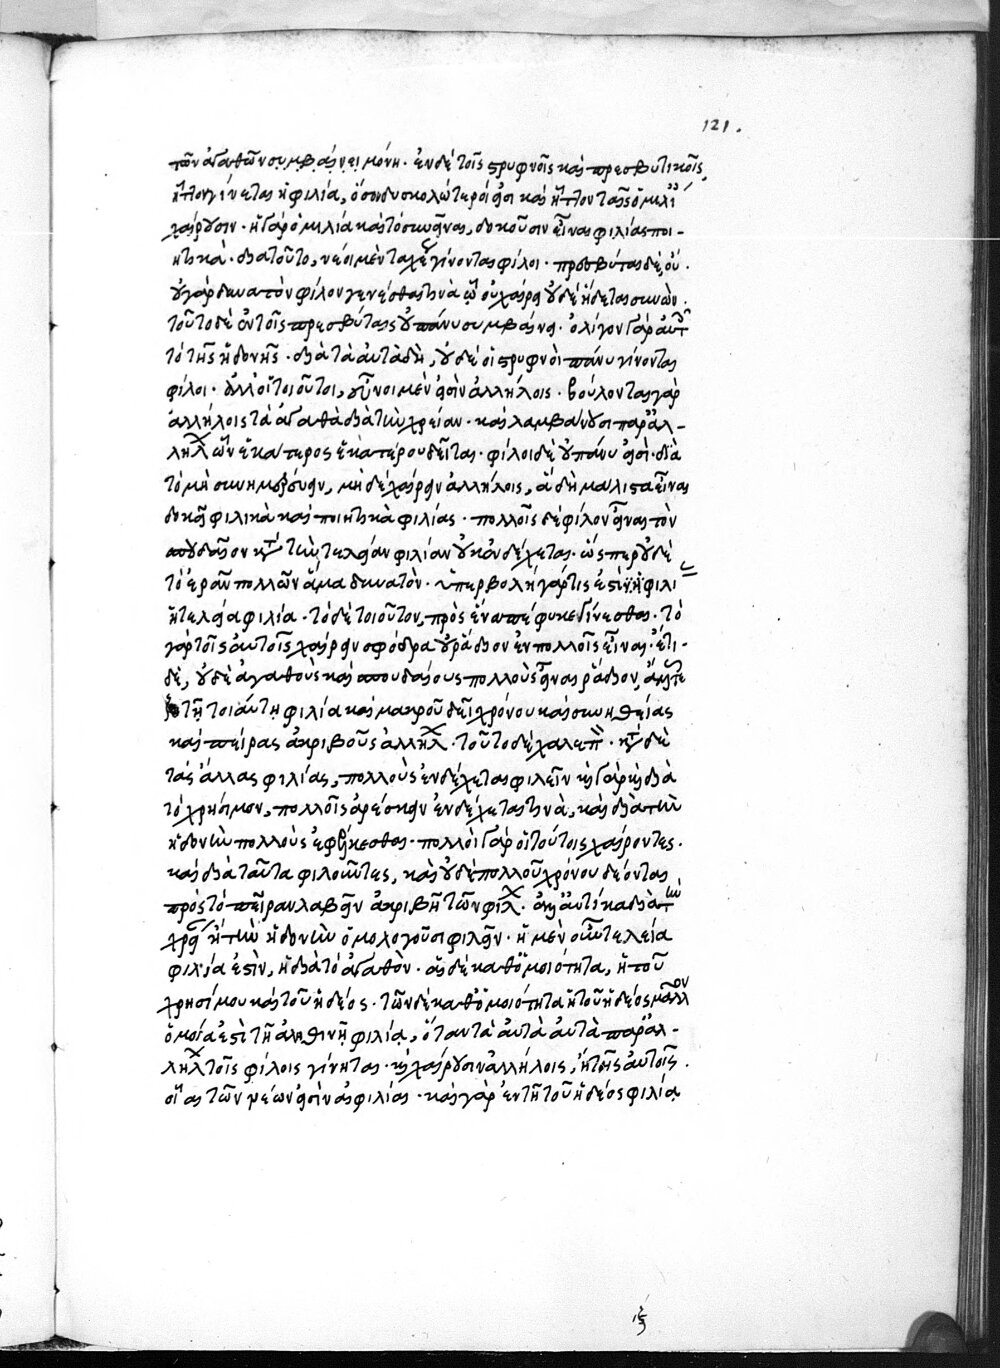 121.
τῶν ἀγαθῶν συμβαίνει μόνη. ἐν δὲ τοῖς στρυφνοῖς καὶ πρεσβυτικοῖς
ἧττον γίνεται ἡ φιλία, ὅσῳ δυσκολώτεροί εἰσι καὶ ἧττον ταῖς ὁμιλί
χαίρουσιν. ἡ γὰρ ὁμιλία καὶ τὸ συνεῖναι, δοκοῦσιν εἶναι φιλίας ποι-
ητικά. διὰ τοῦτο, νέοι μὲν ταχὺ γίνονται φίλοι. πρεσβύται δὲ, οὔ.
οὐ γὰρ δυνατὸν φίλον γενέσθαι τινὰ ᾧ οὐ χαίρει οὐδὲ ἥδεται συνών.
τοῦτο δὲ ἐν τοῖς πρεσβύταις οὐ πάνυ συμβαίνει. ὀλίγον γὰρ αὐτ
τὸ τῆς ἡδονῆς. διὰ τὰ αὐτὰ δὴ, οὐδὲ οἱ στρυφνοὶ πάνυ γίνονται
φίλοι. ἀλλ' οἱ τοιοῦτοι, εὖνοι μὲν εἰσὶν ἀλλήλοις. βούλονται γὰρ
ἀλλήλοις τὰ ἀγαθὰ διὰ τὴν χρείαν. καὶ λαμβάνουσι παρ' ἀλ-
λήλ ὧν ἑκάτερος ἑκατέρου δεῖται. φίλοι δὲ οὐ πάνυ εἰσὶ. διὰ
τὸ μὴ συνημερεύειν, μὴ δὲ χαίρειν ἀλλήλοις, ἃ δὴ μάλιστα εἶναι
δοκεῖ φιλικὰ καὶ ποιητικὰ φιλίας. πολλοῖς δὲ φίλον εἶναι τὸν
σπουδαῖον κτ τὴν τελείαν φιλίαν οὐκ ἐνδέχεται. ὥσπερ οὐδὲ
τὸ ἐρᾶν πολλῶν ἅμα δυνατόν. ὑπερβολὴ γάρ τις ἐστὶν ἡ φιλί
ἡ τελεία φιλία. τὸ δὲ τοιοῦτον, πρὸς ἕνα πέφυκε γίνεσθαι. τὸ
γὰρ τοῖς αὐτοῖς χαίρειν σφόδρα οὐ ῥᾴδιον ἐν πολλοῖς εἶναι. ἔτι
δὲ, οὐδὲ ἀγαθοὺς καὶ σπουδαίους πολλοὺς εἶναι ῥᾴδιον,
τῇ τοιαύτῃ φιλίᾳ καὶ μακροῦ δεῖ χρόνου καὶ συνηθείας
καὶ πείρας ἀκριβοῦς ἀλλήλ. τοῦτο δὲ χαλεπὸν. κτ δὲ
τὰς ἄλλας φιλίας, πολλοὺς ἐνδέχεται φιλεῖν καὶ γὰρ καὶ διὰ
τὸ χρήσιμον, πολλοῖς ἀρέσκειν ἐνδέχεται τινὰ, καὶ διὰ τὴν
ἡδονὴν πολλοὺς ἐφέλκεσθαι. πολλοὶ γὰρ οἱ τούτοις χαίροντες.
καὶ διὰ ταῦτα φιλοῦντες, καὶ οὐδὲ πολλοῦ χρόνου δέονται
πρὸς τὸ πεῖραν λαβεῖν ἀκριβῆ τῶν φίλ. αὐτίκα διὰ τὴν
χρεί ἢ τὴν ἡδονὴν ὁμολογοῦσι φιλεῖν. ἡ μὲν οὖν τελεία
φιλία ἐστὶν, ἡ διὰ τὸ ἀγαθὸν. αἱ δὲ καθ' ὁμοιότητα, ἡ τοῦ
χρησίμου καὶ τοῦ ἡδέος. τῶν δὲ καθ' ὁμοιότητα ἡ τοῦ ἡδέος μᾶλλον
ὁμοία ἐστὶ τῇ ἀληθινῇ φιλίᾳ, ὅταν τὰ αὐτὰ αὐτὰ παρ' ἀλ-
λήλ τοῖς φίλοις γίνηται. καὶ χαίρουσιν ἀλλήλοις, ἢ τοῖς αὐτοῖς.
οἷαι τῶν νέων εἰσὶν αἱ φιλίαι. καὶ γὰρ ἐν τῇ τοῦ ἡδέος φιλίᾳ